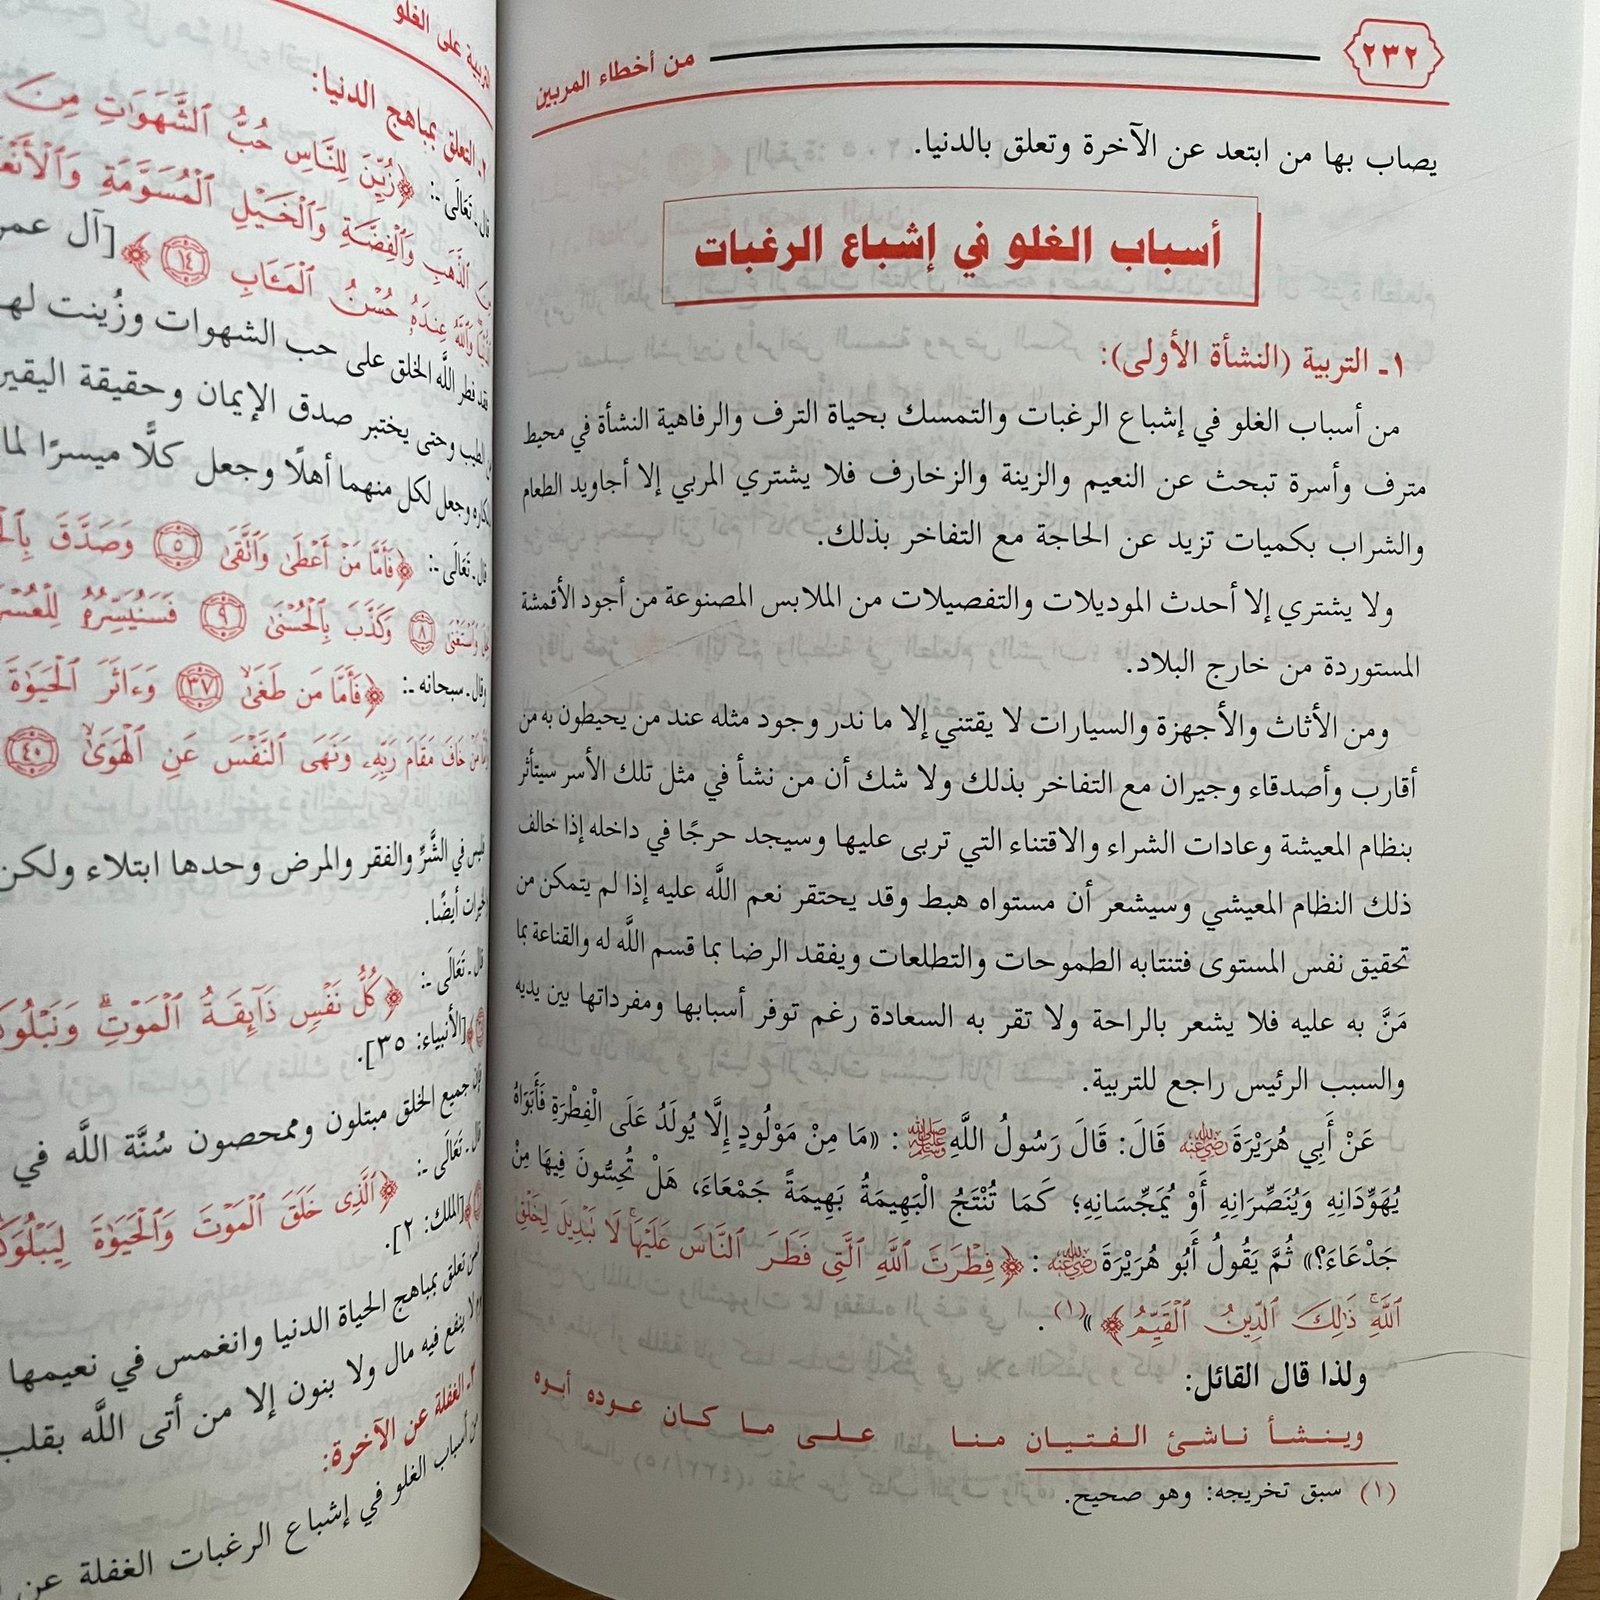 ٢٣٢
من أخطاء المربين
يصاب بها من ابتعد عن الآخرة وتعلق بالدنيا.
أسباب الغلو في إشباع الرغبات
١ـ التربية (النشأة الأولى):
من أسباب الغلو في إشباع الرغبات والتمسك بحياة الترف والرفاهية النشأة في محيط
مترف وأسرة تبحث عن النعيم والزينة والزخارف فلا يشتري المربي إلا أجاويد الطعام
والشراب بكميات تزيد عن الحاجة مع التفاخر بذلك.
ولا يشتري إلا أحدث الموديلات والتفصيلات من الملابس المصنوعة من أجود الأقمشة
المستوردة من خارج البلاد.
ومن الأثاث والأجهزة والسيارات لا يقتني إلا ما ندر وجود مثله عند من يحيطون به من
أقارب وأصدقاء وجيران مع التفاخر بذلك ولا شك أن من نشأ في مثل تلك الأسر سيتأثر
بنظام المعيشة وعادات الشراء والاقتناء التي تربى عليها وسيجد حرجًا في داخله إذا خالف
ذلك النظام المعيشي وسيشعر أن مستواه هبط وقد يحتقر نعم اللَّه عليه إذا لم يتمكن من
تحقيق نفس المستوى فتنتابه الطموحات والتطلعات ويفقد الرضا بما قسم اللَّه له والقناعة بما
مَنَّ به عليه فلا يشعر بالراحة ولا تقر به السعادة رغم توفر أسبابها ومفرداتها بين يديه
والسبب الرئيس راجع للتربية.
عَنْ أَبِي هُرَيْرَةَ رضي الله عنه قَالَ: قَالَ رَسُولُ اللَّهِ ﷺ: «مَا مِنْ مَوْلُودٍ إِلَّا يُولَدُ عَلَى الْفِطْرَةِ فَأَبَوَاهُ
يُهَوِّدَانِهِ وَيُنَصِّرَانِهِ أَوْ يُمَجِّسَانِهِ؛ كَمَا تُنْتَجُ الْبَهِيمَةُ بَهِيمَةً جَمْعَاءَ، هَلْ تُحِسُّونَ فِيهَا مِنْ
جَدْعَاءَ؟» ثُمَّ يَقُولُ أَبُو هُرَيْرَةَ رضي الله عنه: ﴿فِطْرَتَ ٱللَّهِ ٱلَّتِي فَطَرَ ٱلنَّاسَ عَلَيْهَا ۚ لَا تَبْدِيلَ لِخَلْقِ
ٱللَّهِ ۚ ذَٰلِكَ ٱلدِّينُ ٱلْقَيِّمُ﴾»(١).
ولذا قال القائل:
وينشأ ناشئ الفتيان منا على ما كان عوده أبوه
(١) سبق تخريجه: وهو صحيح.
على الغلو
التعلق بمباهج الدنيا:
قال ـ تَعَالَى ـ: ﴿زُيِّنَ لِلنَّاسِ حُبُّ ٱلشَّهَوَٰتِ مِنَ
ٱلذَّهَبِ وَٱلْفِضَّةِ وَٱلْخَيْلِ ٱلْمُسَوَّمَةِ
وَٱللَّهُ عِندَهُۥ حُسْنُ ٱلْمَـَٔابِ ١٤﴾ [آل
فقد فطر اللَّه الخلق على حب الشهوات وزُينت
وحتى يختبر صدق الإيمان وحقيقة
وجعل لكل منهما أهلًا وجعل كلًّا ميسرًا لما
قال ـ تَعَالَى ـ: ﴿فَأَمَّا مَنْ أَعْطَىٰ وَٱتَّقَىٰ ٥ وَصَدَّقَ
وَٱسْتَغْنَىٰ ٨ وَكَذَّبَ بِٱلْحُسْنَىٰ ٩ فَسَنُيَسِّرُهُۥ
وقال ـ سبحانه ـ: ﴿فَأَمَّا مَن طَغَىٰ ٣٧ وَءَاثَرَ ٱلْحَيَوٰةَ
خَافَ مَقَامَ رَبِّهِۦ وَنَهَى ٱلنَّفْسَ عَنِ ٱلْهَوَىٰ ٤٠
فليس في الشَّرِّ والفقر والمرض وحدها ابتلاء ولكن
أيضًا.
قال ـ تَعَالَى ـ: ﴿كُلُّ نَفْسٍ ذَآئِقَةُ ٱلْمَوْتِ ۗ
[الأنبياء: ٣٥].
جميع الخلق مبتلون وممحصون سُنَّة اللَّه في
قال ـ تَعَالَى ـ: ﴿ٱلَّذِى خَلَقَ ٱلْمَوْتَ وَٱلْحَيَوٰةَ
[الملك: ٢].
تعلق بمباهج الحياة الدنيا وانغمس في نعيمها
لا ينفع فيه مال ولا بنون إلا من أتى اللَّه بقلب
الغفلة عن الآخرة:
من أسباب الغلو في إشباع الرغبات الغفلة عن